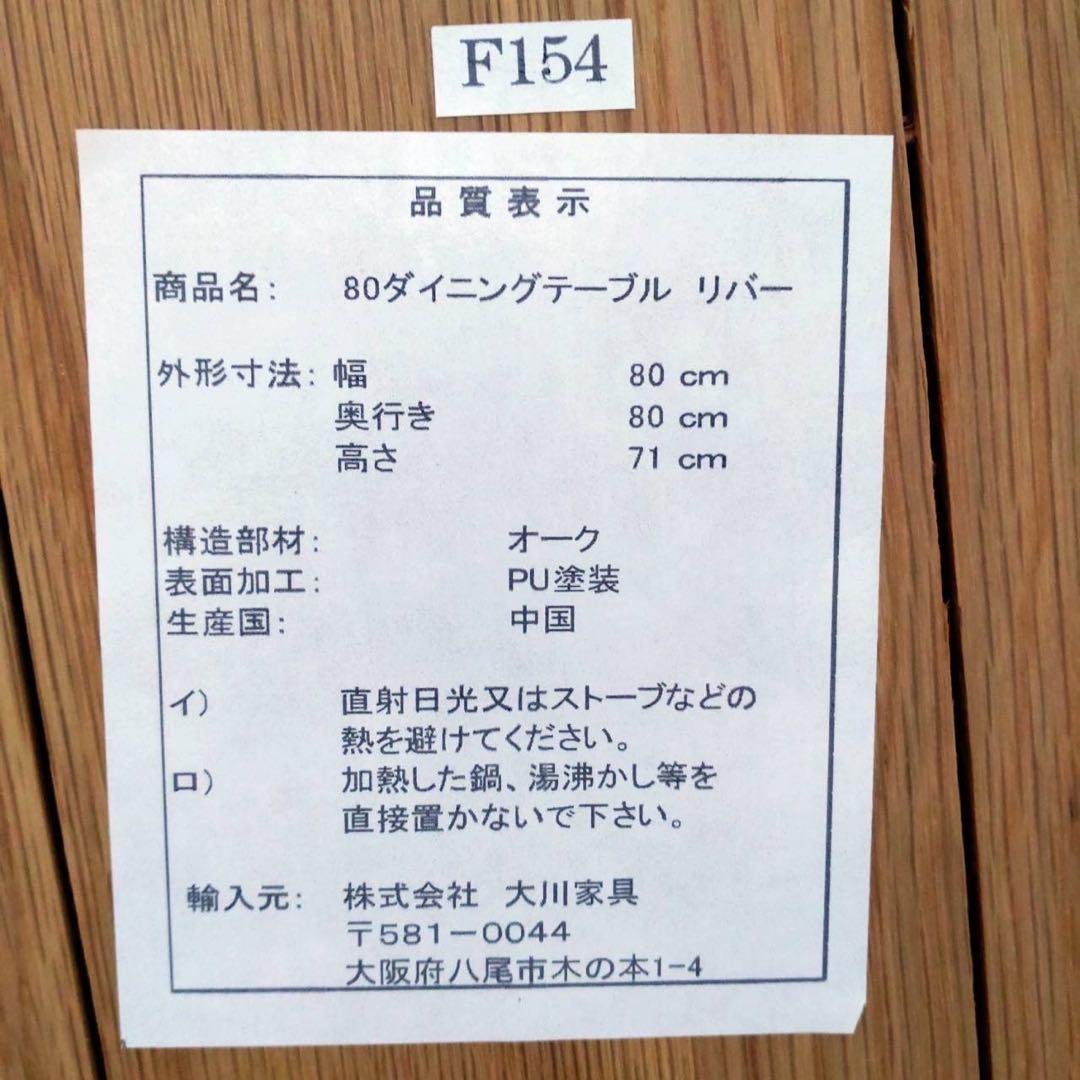 F154
品質表示
商品名: 80ダイニングテーブル リバー
外形寸法: 幅 80 cm
奥行き 80 cm
高さ 71 cm
構造部材: オーク
表面加工: PU塗装
生産国: 中国
イ) 直射日光又はストーブなどの
熱を避けてください。
ロ) 加熱した鍋、湯沸かし等を
直接置かないで下さい。
輸入元: 株式会社 大川家具
〒581-0044
大阪府八尾市木の本1-4